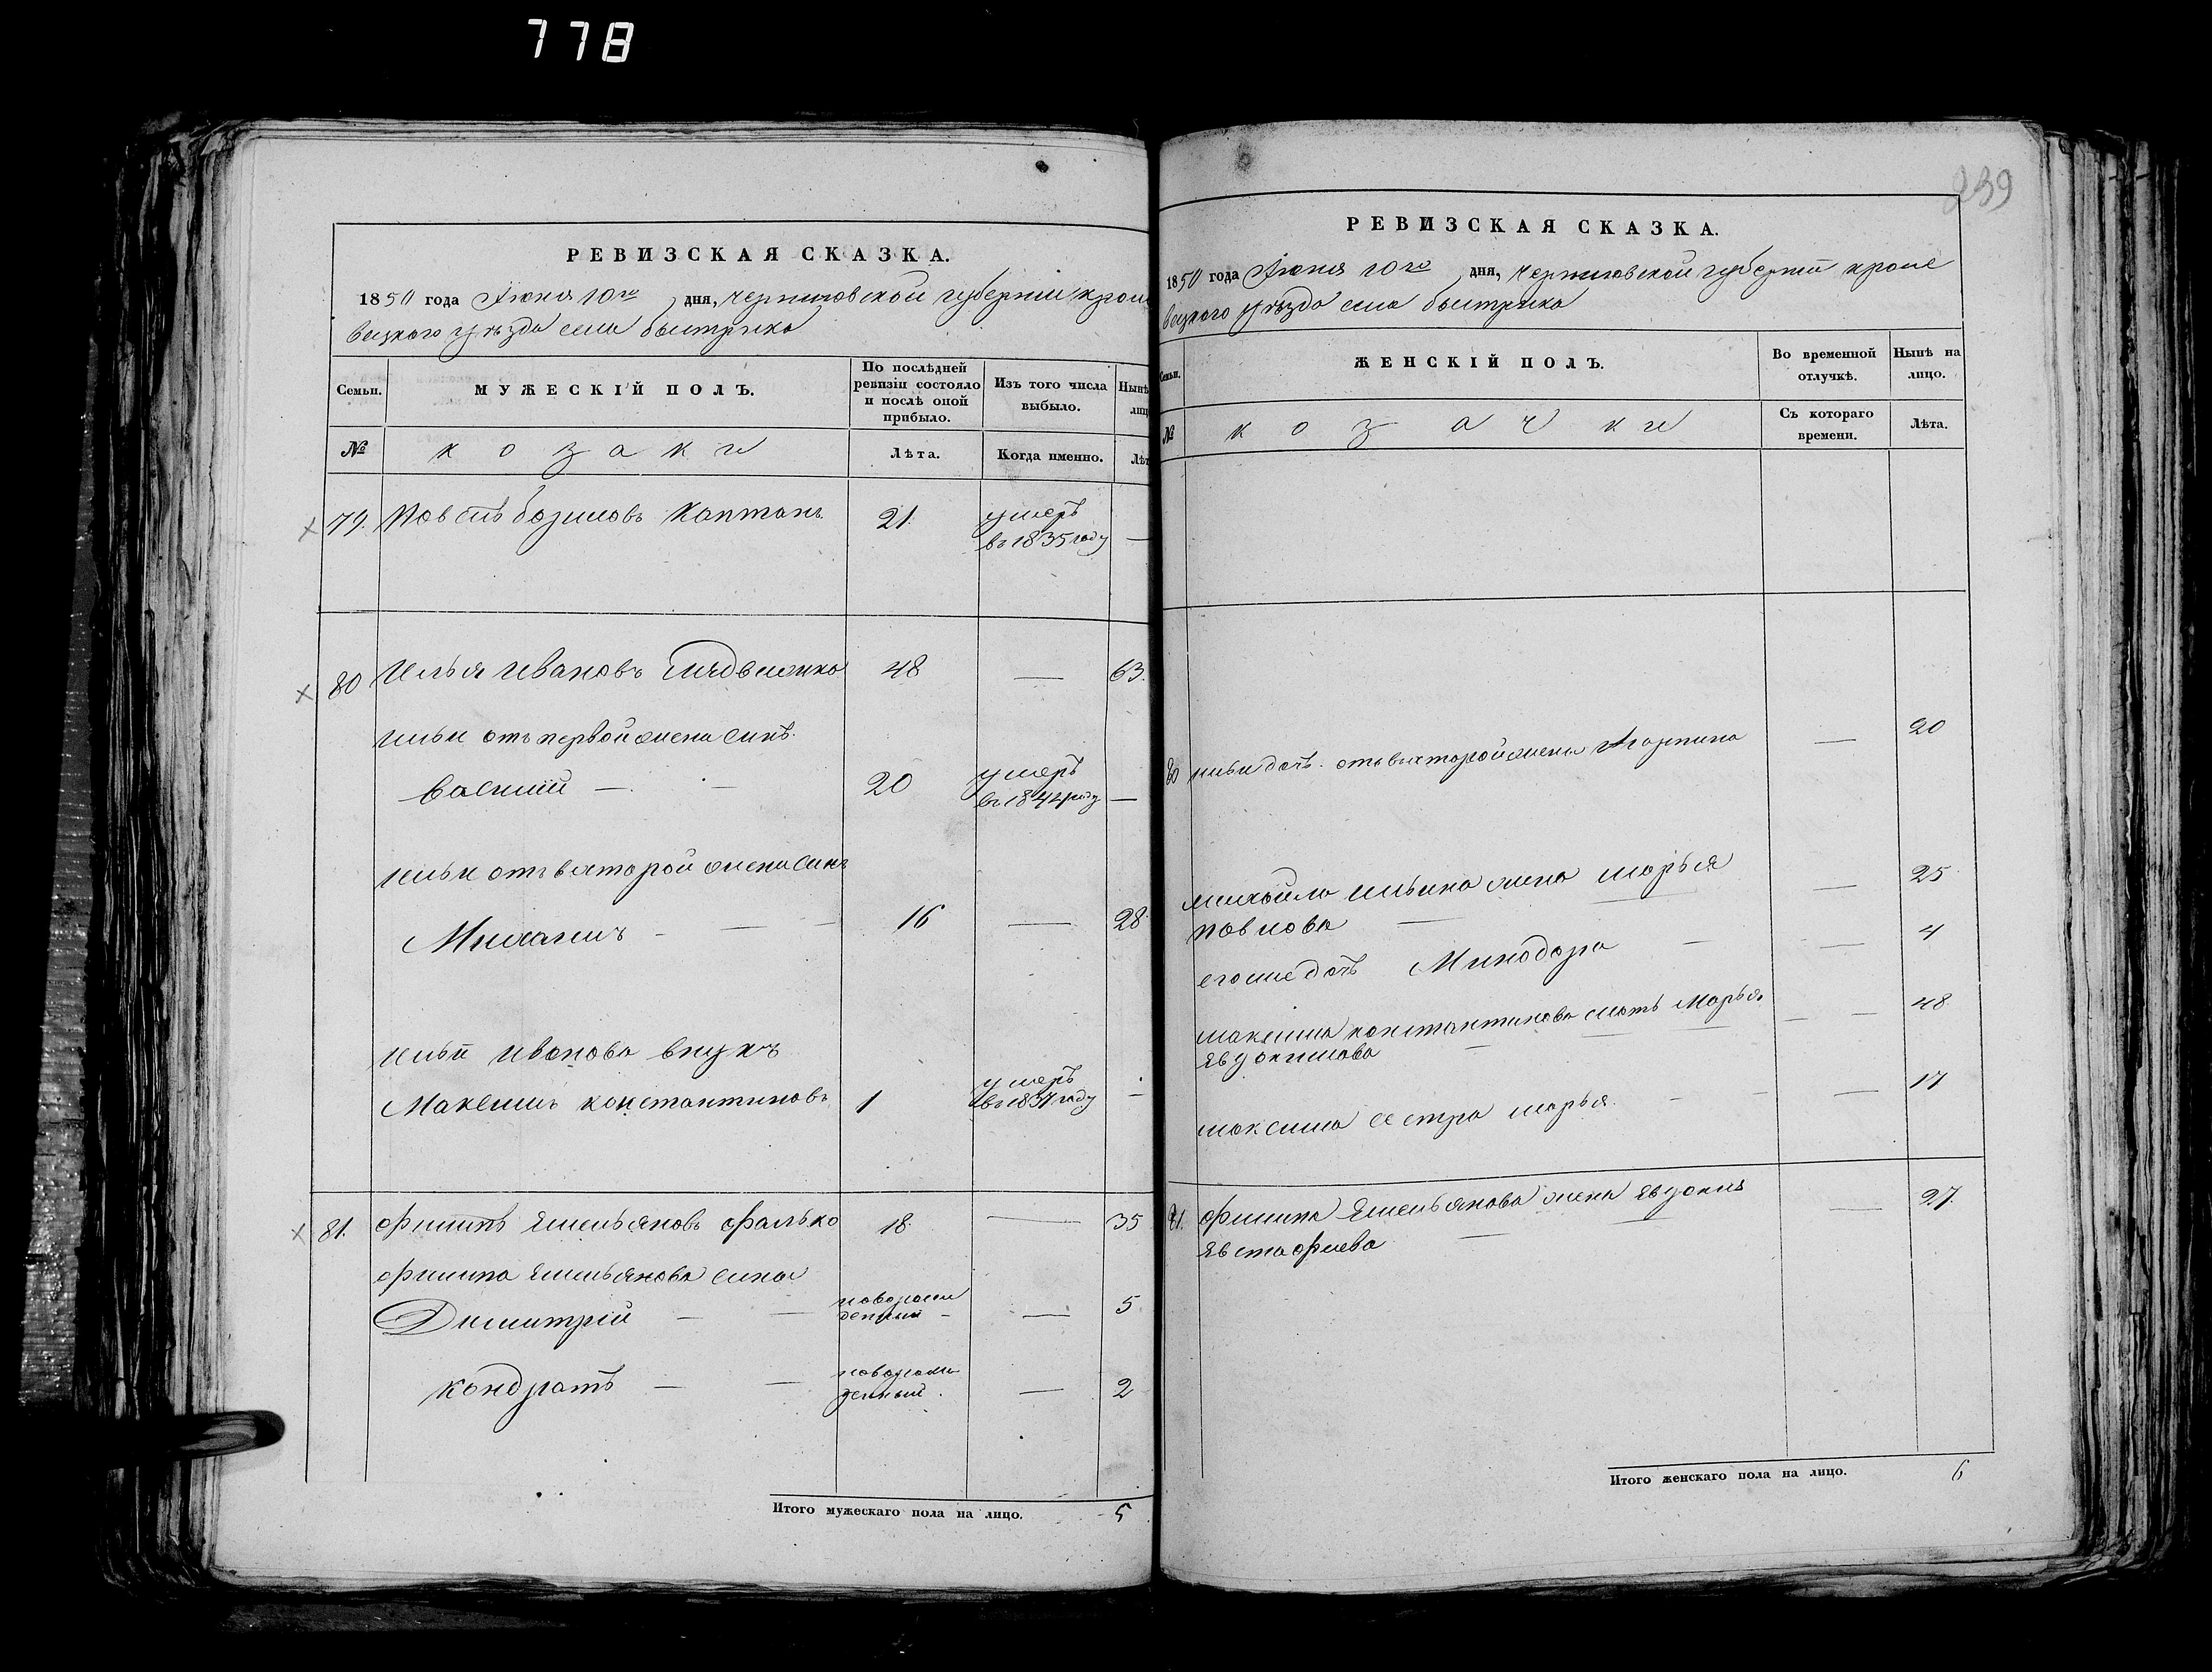 778
239
РЕВИЗСКАЯ СКАЗКА.
1850 года Июня 10го дня, Черниговской губернии Кроле
вецкого уезда села быстрика
Семьи.
МУЖЕСКІЙ ПОЛЪ.
По послѣдней ревизіи состояло и послѣ оной прибыло.
Изъ того числа выбыло.
Нынѣ
лиц
№
козаки
Лѣта.
Когда именно.
Лѣт
79. 21. умеръ
въ 1835 году —
80 Илья Ивановъ 48 — 63.
Ильи отъ первой жены сынъ
Василий — - 20 умеръ
въ 1844 году —
Ильи отъ вяторой жены сынъ
Михаилъ - — - 16 — 28.
Ильи Иванова внукъ
Максимъ Константиновъ 1 умеръ
въ 1837 году —
81. Филипъ Емельяновъ Фалько 18. — 35
Филипа Емельянова сыны
Димитрій — — новорож
денный — — 5
Кондратъ — — новорож
денный. — 2
Итого мужескаго пола на лицо. 5
РЕВИЗСКАЯ СКАЗКА.
1850 года Июня 10го дня, Черниговской губерніи Кроле
вецкого уезда села быстрика
Семьи.
ЖЕНСКІЙ ПОЛЪ.
Во временной отлучкѣ.
Нынѣ на лицо.
№
козачки
Съ котораго времени.
Лѣта.
80 Ильи дочь отъ вяторой жены — 20
Михайла Ильина жена Марья — 25
Павлова —
его же дочь Минодора — — 4
Максима Константинова мать Марья — — 48
Явдокимова —
Максима сестра Марья. - - — 17
81. Филипа Емельянова жена Явдокия — 27.
Явстафиева —
Итого женскаго пола на лицо. 6